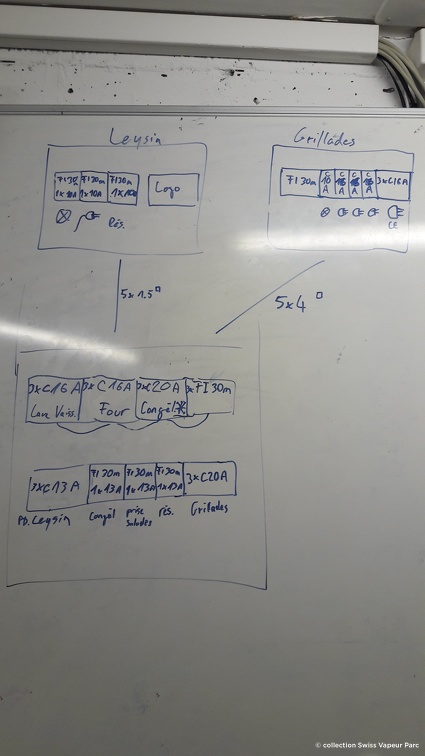 Leysin
Grillades
FI30m FI30m FI30m
1x10A 1x10A 1x10A
Logo
Rés.
FI 30m C 10 A C A C A C A 3xC16A
CE
5x1.5□
5x4□
3xC16A 3xC16A 3xC20A 3xFI30m
Lave Vaiss. Four Congél
3xC13A
FI30m FI30m FI30m
1x13A 1x13A 1x13A
3xC20A
PD. Leysin Congél prise salades rés. Grillades
© collection Swiss Vapeur Parc